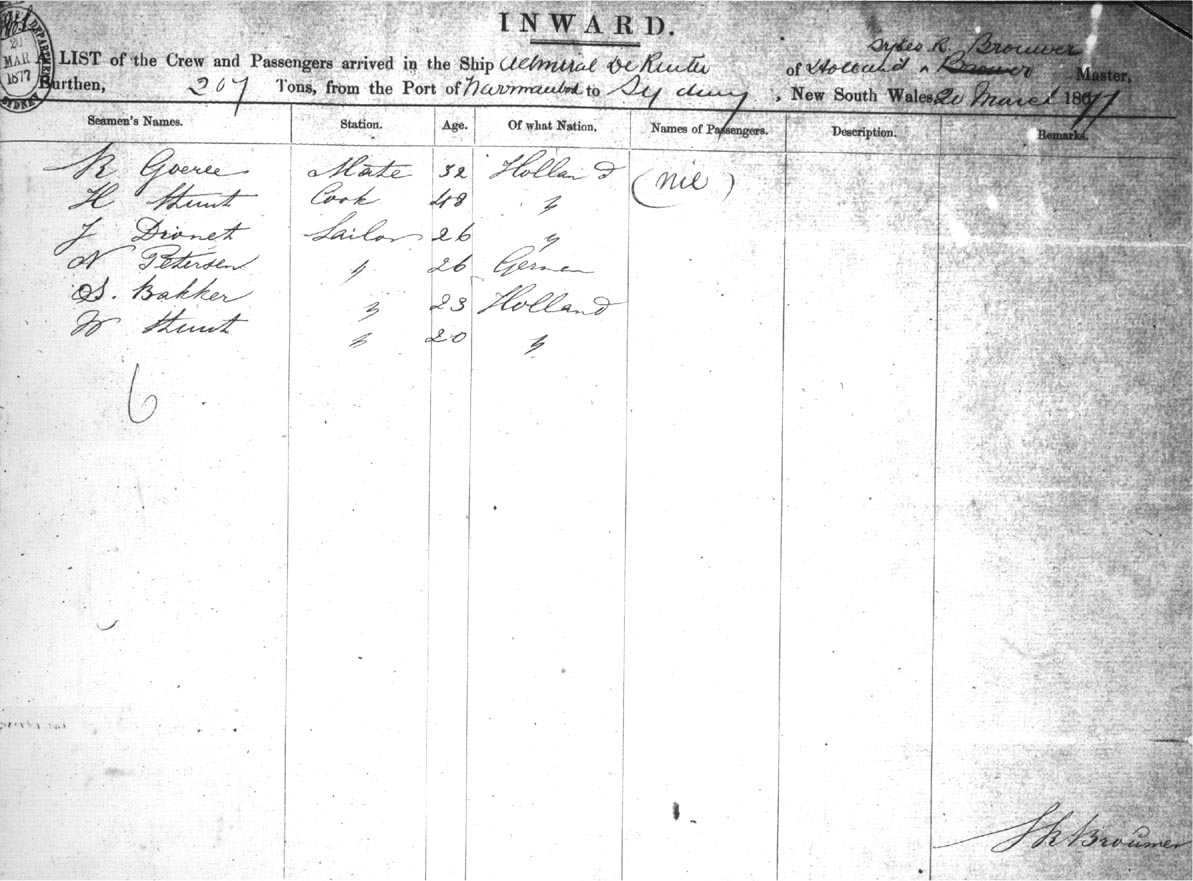 INWARD.
Sykes R. Brouwer
A LIST of the Crew and Passengers arrived in the Ship Admiral De Ruiter of Holland, Brouwer Master,
Burthen, 207 Tons, from the Port of to Sydney, New South Wales 20 March 1877
Seamen's Names. Station. Age. Of what Nation. Names of Passengers. Description. Remarks.
R Goeree Mate 32 Holland (nil)
H Stunt Cook 48 "
J Dronet Sailor 26 "
N Petersen " 26 German
S. Bakker " 23 Holland
W Stunt " 20 "
6
S R Brouwer
20
MAR
1877
SYDNEY